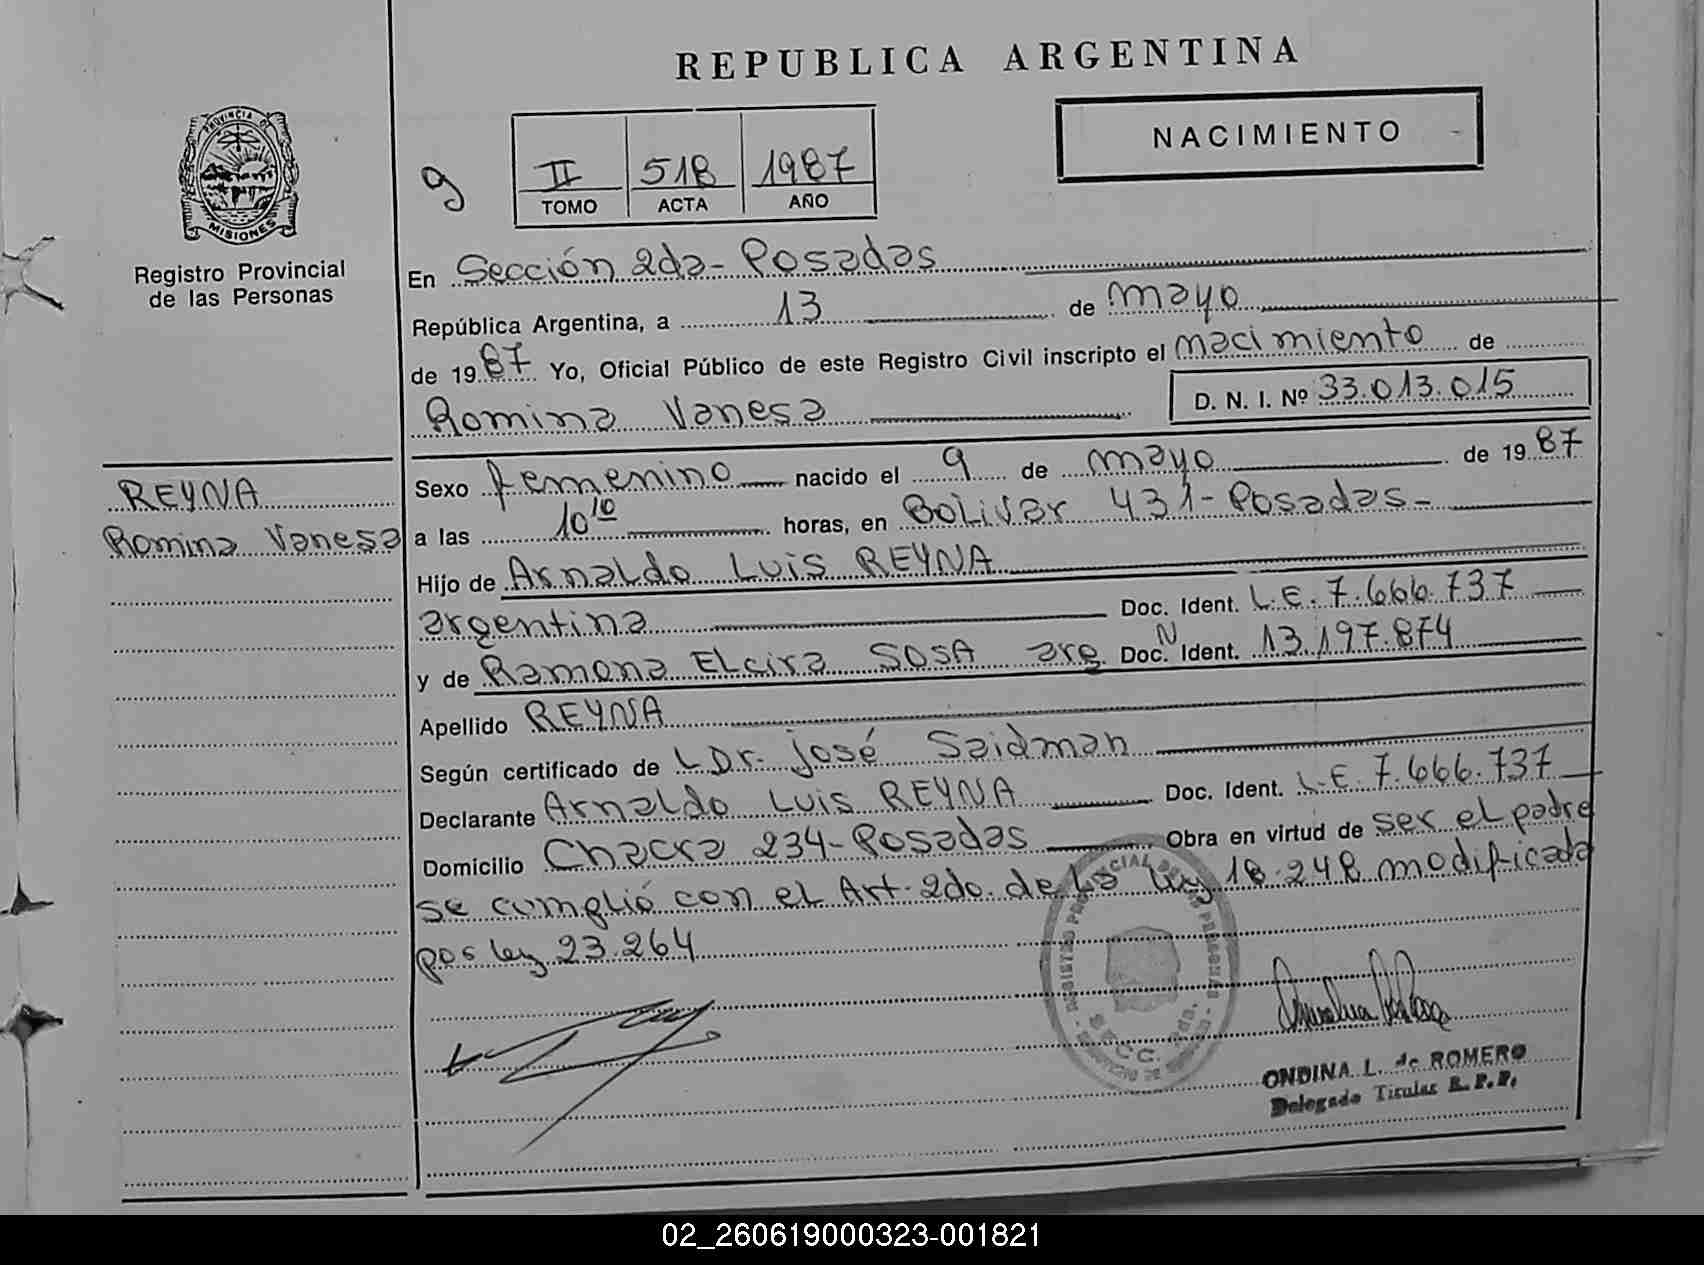 REPUBLICA ARGENTINA
NACIMIENTO
PROVINCIA DE
MISIONES
Registro Provincial
de las Personas
9
II 518 1987
TOMO ACTA AÑO
En Sección 2da- Posadas
República Argentina, a 13 de mayo
de 1987 Yo, Oficial Público de este Registro Civil inscripto el nacimiento de
Romina Vanesa D. N. I. Nº 33.013.015
REYNA
Romina Vanesa
Sexo femenino nacido el 9 de mayo de 1987
a las 10 10 horas, en Bolivar 431- Posadas-
Hijo de Arnaldo Luis REYNA
argentina Doc. Ident. L.E. 7.666.737
y de Ramona Elcira SOSA arg. Doc. N Ident. 13.197.874
Apellido REYNA
Según certificado de L Dr. José Saidman
Declarante Arnaldo Luis REYNA Doc. Ident. L.E. 7.666.737
Domicilio Chacra 234- Posadas Obra en virtud de ser el padre
se cumplió con el Art. 2do. de la ley 18.248 modificada
por ley 23.264
SECC. 2da.
ONDINA L. de ROMERO
Delegado Titular R. P. P.
02_260619000323-001821